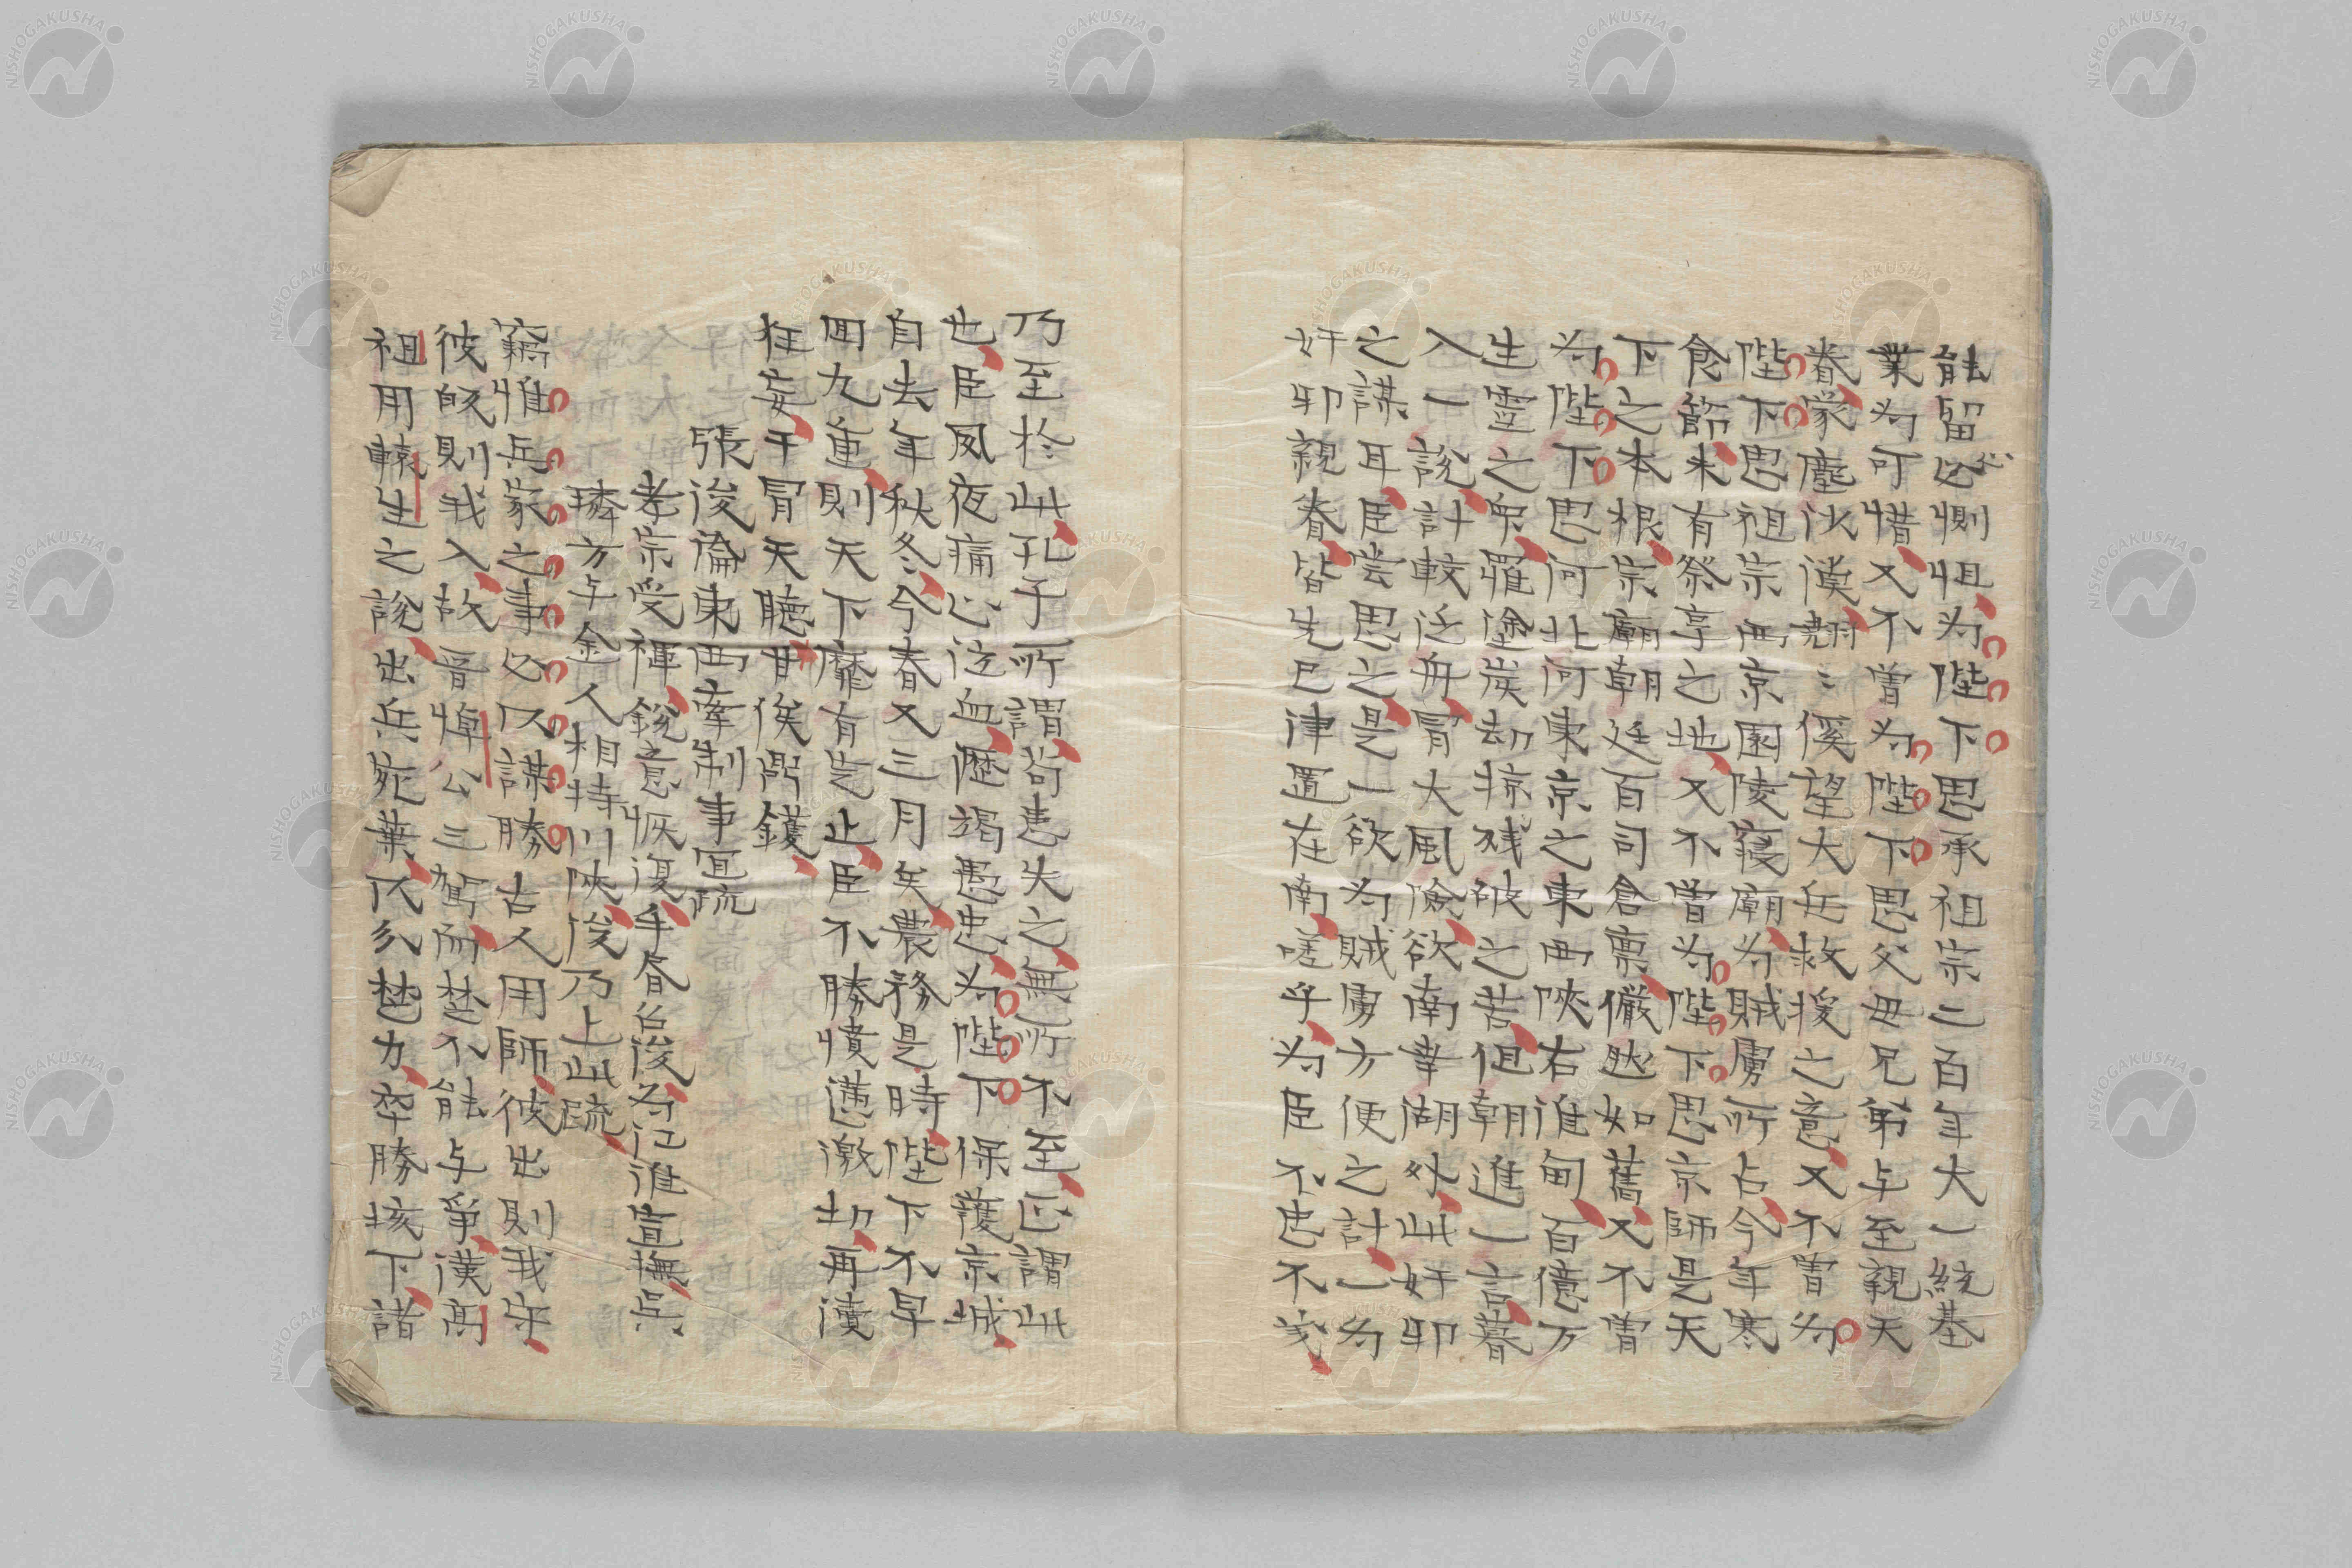 能留心惻怛為陛下思承祖宗二百年大一統基
業為可惜又不曽為陛下思父母兄弟与至親天
眷蒙塵沙漠翹〻傒望大兵救援之意又不曽為
陛下思祖宗西京園陵寝廟為賊虜所占今年寒
食節未有祭享之地又不曽為陛下思京師是天
下之本根宗廟朝廷百司倉廩儼然如舊又不曽
為陛下思河北河東京之東西陜右淮甸百億万
生霊之衆罹塗炭劫掠残破之苦但朝進一言暮
入一說計較泛舟冒大風險欲南幸湖外此奸邪
之謀耳臣尝思之是一欲為賊虜方便之計一為
奸邪親眷皆先已津置在南嗟乎為臣不忠不义
乃至於此孔子所謂苟患失之無所不至正謂此
也臣夙夜痛心泣血歴竭愚忠為陛下保護京城
自去年秋冬今春又三月矣農務是時陛下不早
囬九重則天下靡有定止臣不勝憤懣激切再瀆
狂妄干冒天聴甘俟鼎鑊
張浚論東西牽制事宜疏
孝宗受禅鋭意恢復手眷台浚為江淮宣撫兵
璘方与金人相持川陜浚乃上此疏
竊惟兵家之事必以謀勝古人用師彼出則我守
彼皈則我入故晋悼公三駕而楚不能与爭漢高
祖用轅生之說出兵宛葉以分楚力卒勝垓下諸